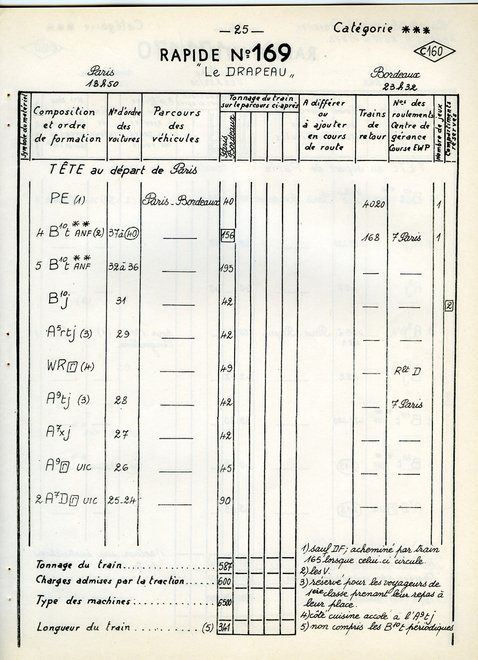 — 25 —
Catégorie ***
RAPIDE Nº 169
"LE DRAPEAU"
C160
Paris
Bordeaux
18h50
23h32
Symbole du matériel
Composition et ordre de formation
Nº d'ordre des voitures
Parcours des véhicules
Tonnage du train sur le parcours ci-après
Paris Bordeaux
A différer ou à ajouter en cours de route
Trains de retour
Nos des roulements Centre de gérance Course EWP
Nombre de jeux
Compartiments réservés
TÊTE au départ de Paris
PE (1) Paris-Bordeaux 40 4020 1
4 B10t ** ANF (2) 37à (40) —— 156 168 7 Paris 1
5 B10t ** ANF 32à36 —— 195 — —
B10j 31 —— 42 — — 2
A5rtj (3) 29 —— 42 — —
WR r (4) —— 49 — Rlt D
A9tj (3) 28 —— 42 — 7 Paris
A7xj 27 —— 42 — —
A9 r UIC 26 —— 45 — —
2 A7D r UIC 25-24 —— 90 — —
Tonnage du train 587
Charges admises par la traction 600
Type des machines 6500
Longueur du train (5) 341
1) sauf DF; acheminé par train
165 lorsque celui ci circule
2) les V.
3) réservé pour les voyageurs de
1ère classe prenant leur repas à
leur place.
4) côté cuisine accolé à l'A9tj
5) non compris les B10t périodiques